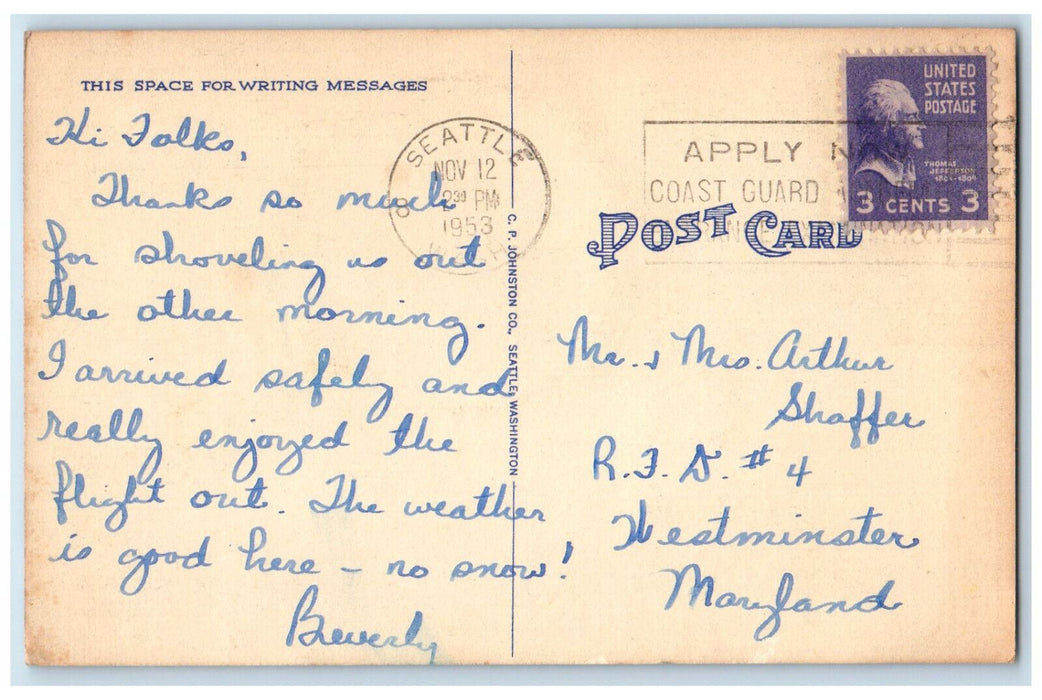 THIS SPACE FOR WRITING MESSAGES
Hi Folks,
Thanks so much
for shoveling us out
the other morning.
I arrived safely and
really enjoyed the
flight out. The weather
is good here – no snow!
Beverly
C. P. JOHNSTON CO., SEATTLE, WASHINGTON
SEATTLE
8
NOV 12
2 30 PM
1953
WASH.
APPLY NOW
COAST GUARD
UNITED
STATES
POSTAGE
THOMAS
JEFFERSON
1801-1809
3 CENTS 3
POST CARD
Mr. & Mrs. Arthur
Shaffer
R.F.D. # 4
Westminster
Maryland